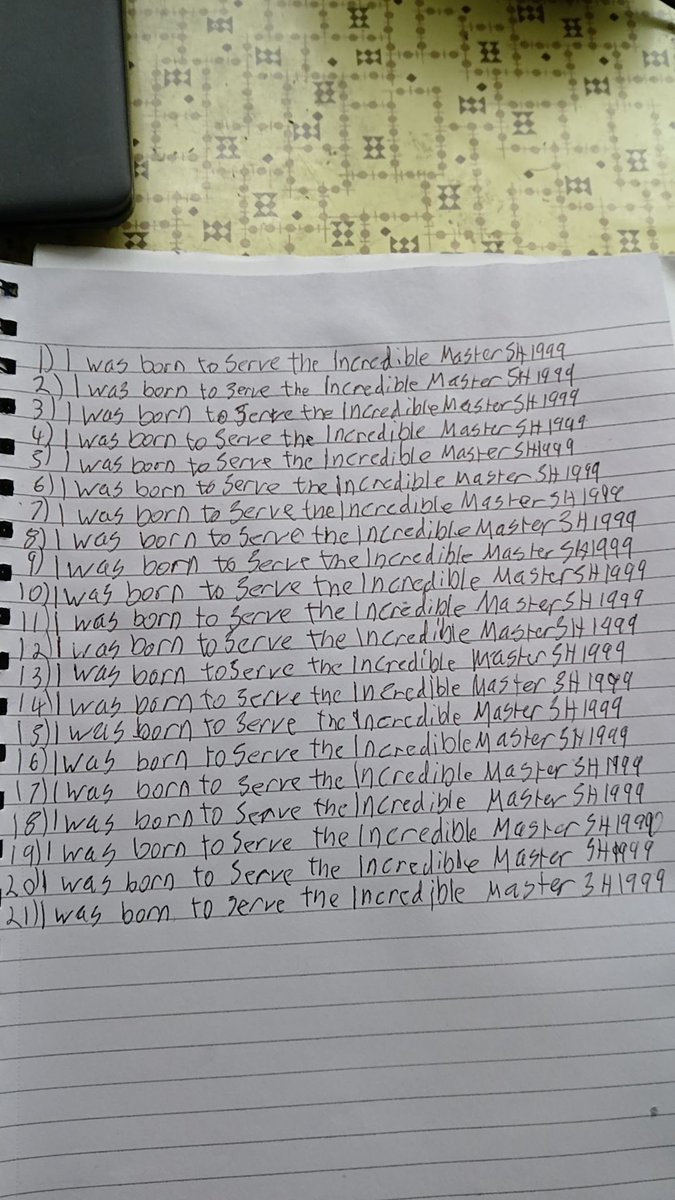 1) I was born to serve the Incredible Master SH1999
2) I was born to serve the Incredible Master SH1999
3) I was born to serve the Incredible Master SH1999
4) I was born to serve the Incredible Master SH1999
5) I was born to serve the Incredible Master SH1999
6) I was born to serve the Incredible Master SH1999
7) I was born to serve the Incredible Master SH1999
8) I was born to serve the Incredible Master SH1999
9) I was born to serve the Incredible Master SH1999
10) I was born to serve the Incredible Master SH1999
11) I was born to serve the Incredible Master SH1999
12) I was born to serve the Incredible Master SH1999
13) I was born to serve the Incredible Master SH1999
14) I was born to serve the Incredible Master SH1999
15) I was born to serve the Incredible Master SH1999
16) I was born to serve the Incredible Master SH1999
17) I was born to serve the Incredible Master SH1999
18) I was born to serve the Incredible Master SH1999
19) I was born to serve the Incredible Master SH1999
20) I was born to serve the Incredible Master SH1999
21) I was born to serve the Incredible Master SH1999